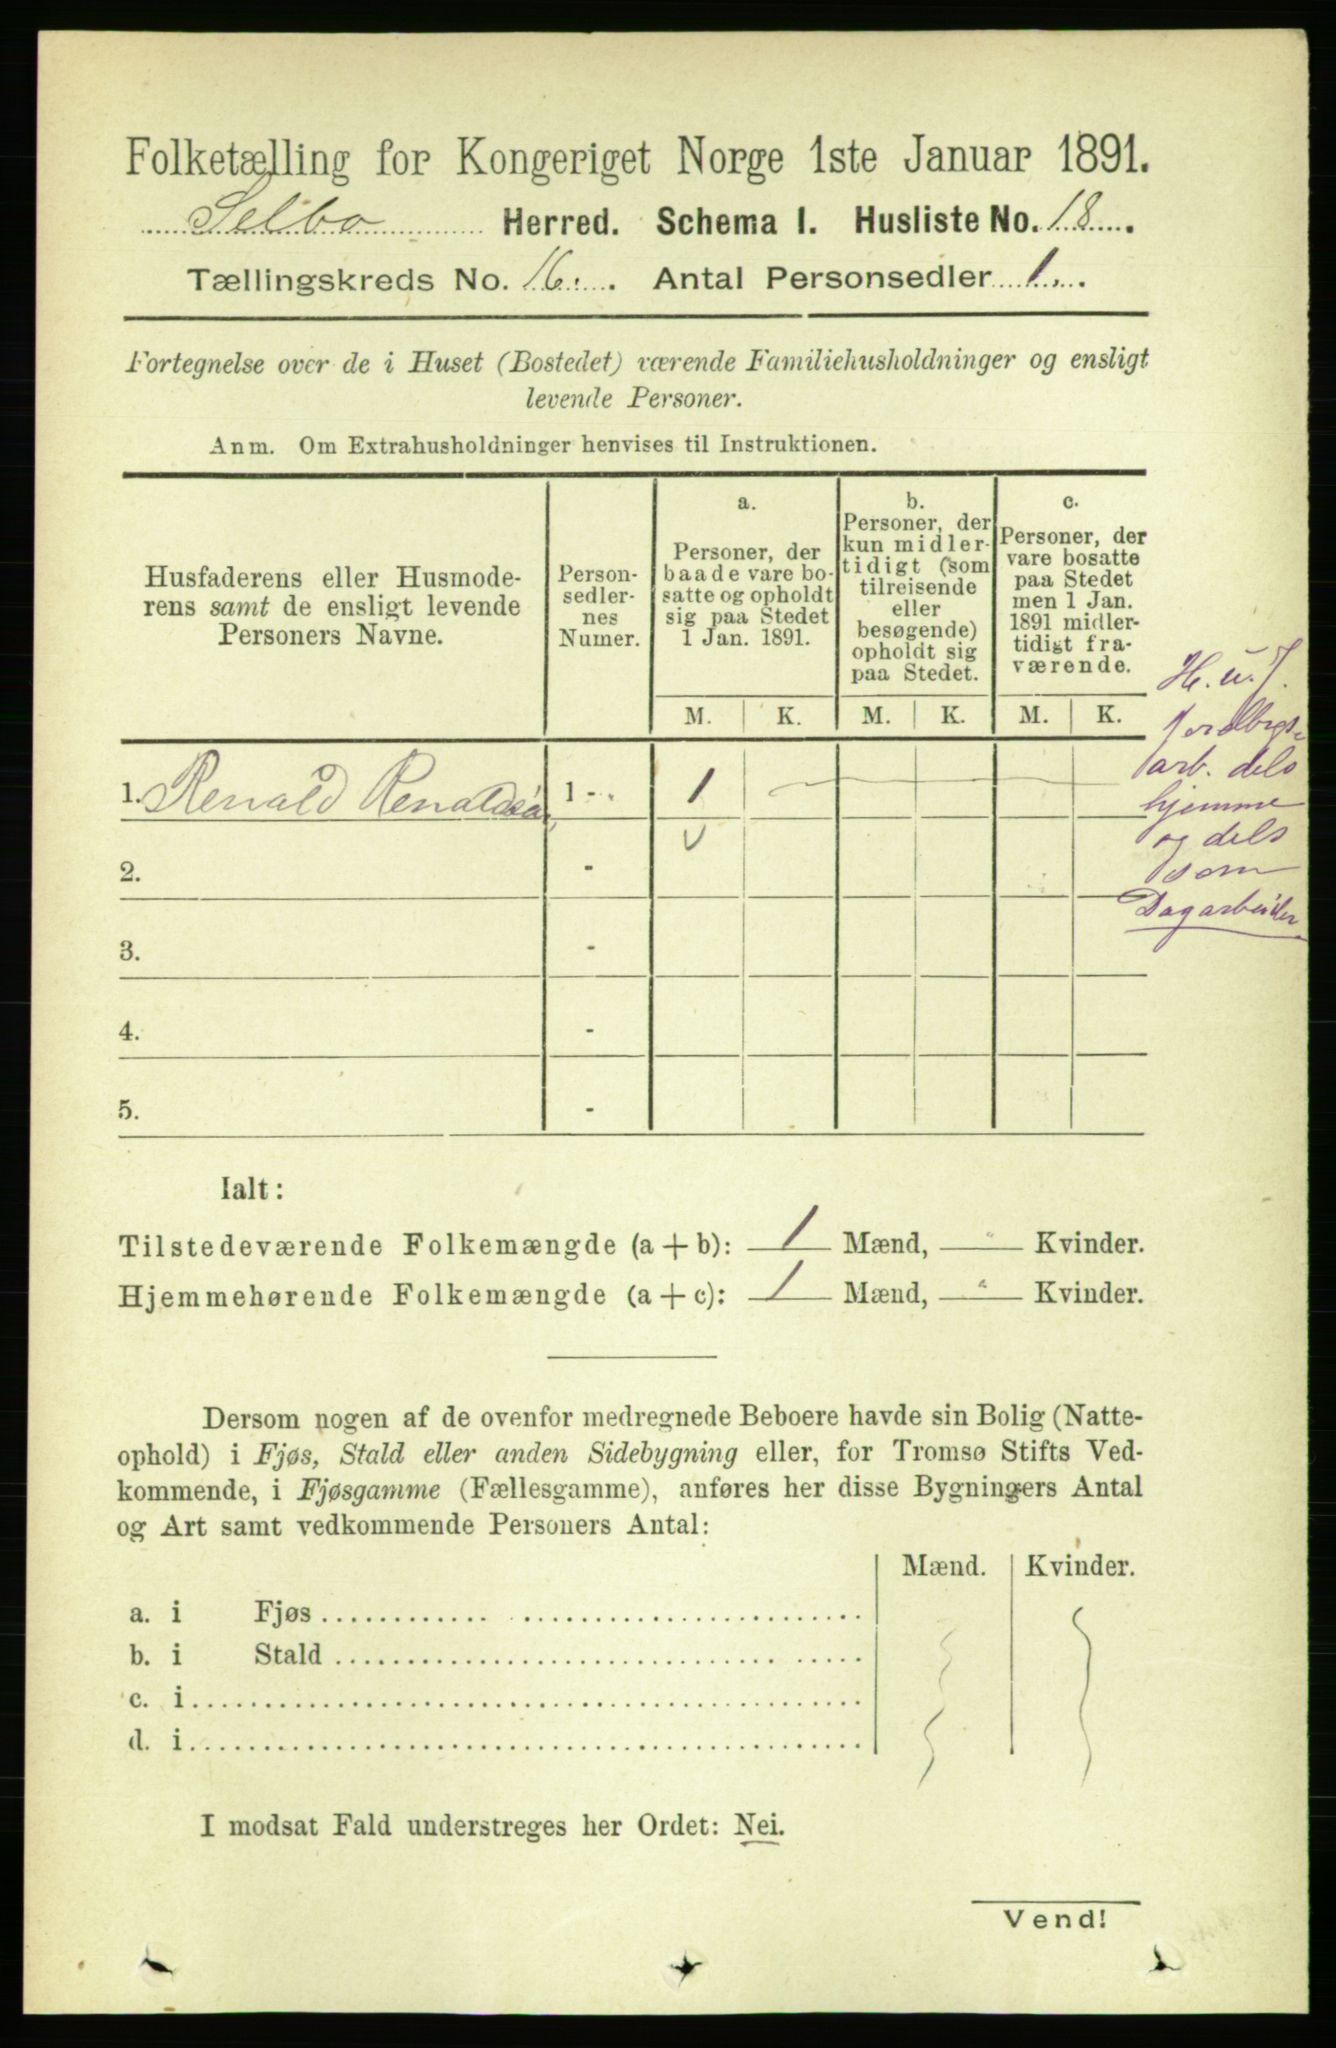 Folketælling for Kongeriget Norge 1ste Januar 1891.
Selbo Herred. Schema I. Husliste No. 18.
Tællingskreds No. 16. Antal Personsedler 1.
Fortegnelse over de i Huset (Bostedet) værende Familiehusholdninger og ensligt
levende Personer.
Anm. Om Extrahusholdninger henvises til Instruktionen.
Husfaderens eller Husmode-
rens samt de ensligt levende
Personers Navne.
Person-
sedler-
nes
Numer.
a.
Personer, der
baade vare bo-
satte og opholdt
sig paa Stedet
1 Jan. 1891.
b.
Personer, der
kun midler-
tidigt (som
tilreisende
eller
besøgende)
opholdt sig
paa Stedet.
c.
Personer, der
vare bosatte
paa Stedet
men 1 Jan.
1891 midler-
tidigt fra-
værende.
M. K. M. K. M. K.
1. Renald Renaldsen 1 - 1 -
2. -
3. -
4. -
5. -
H. u. J.
Jordbrgs-
arb. dels
hjemme
og dels
som
Dagarbeider
Ialt:
Tilstedeværende Folkemængde (a + b): 1 Mænd, " Kvinder.
Hjemmehørende Folkemængde (a + c): 1 Mænd, " Kvinder.
Dersom nogen af de ovenfor medregnede Beboere havde sin Bolig (Natte-
ophold) i Fjøs, Stald eller anden Sidebygning eller, for Tromsø Stifts Ved-
kommende, i Fjøsgamme (Fællesgamme), anføres her disse Bygningers Antal
og Art samt vedkommende Personers Antal:
Mænd. Kvinder.
a. i Fjøs
b. i Stald
c. i
d. i
I modsat Fald understreges her Ordet: Nei.
Vend!